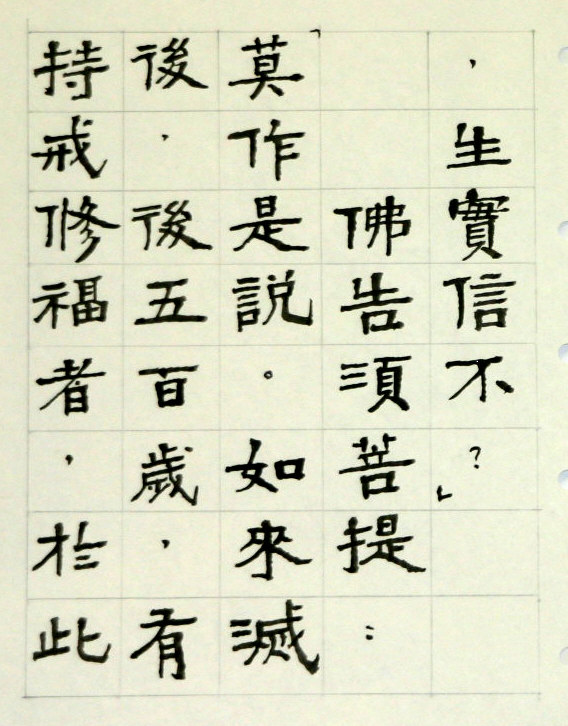 ，生實信不？」
佛告須菩提：
「莫作是說。如來滅
後，後五百歲，有
持戒修福者，於此